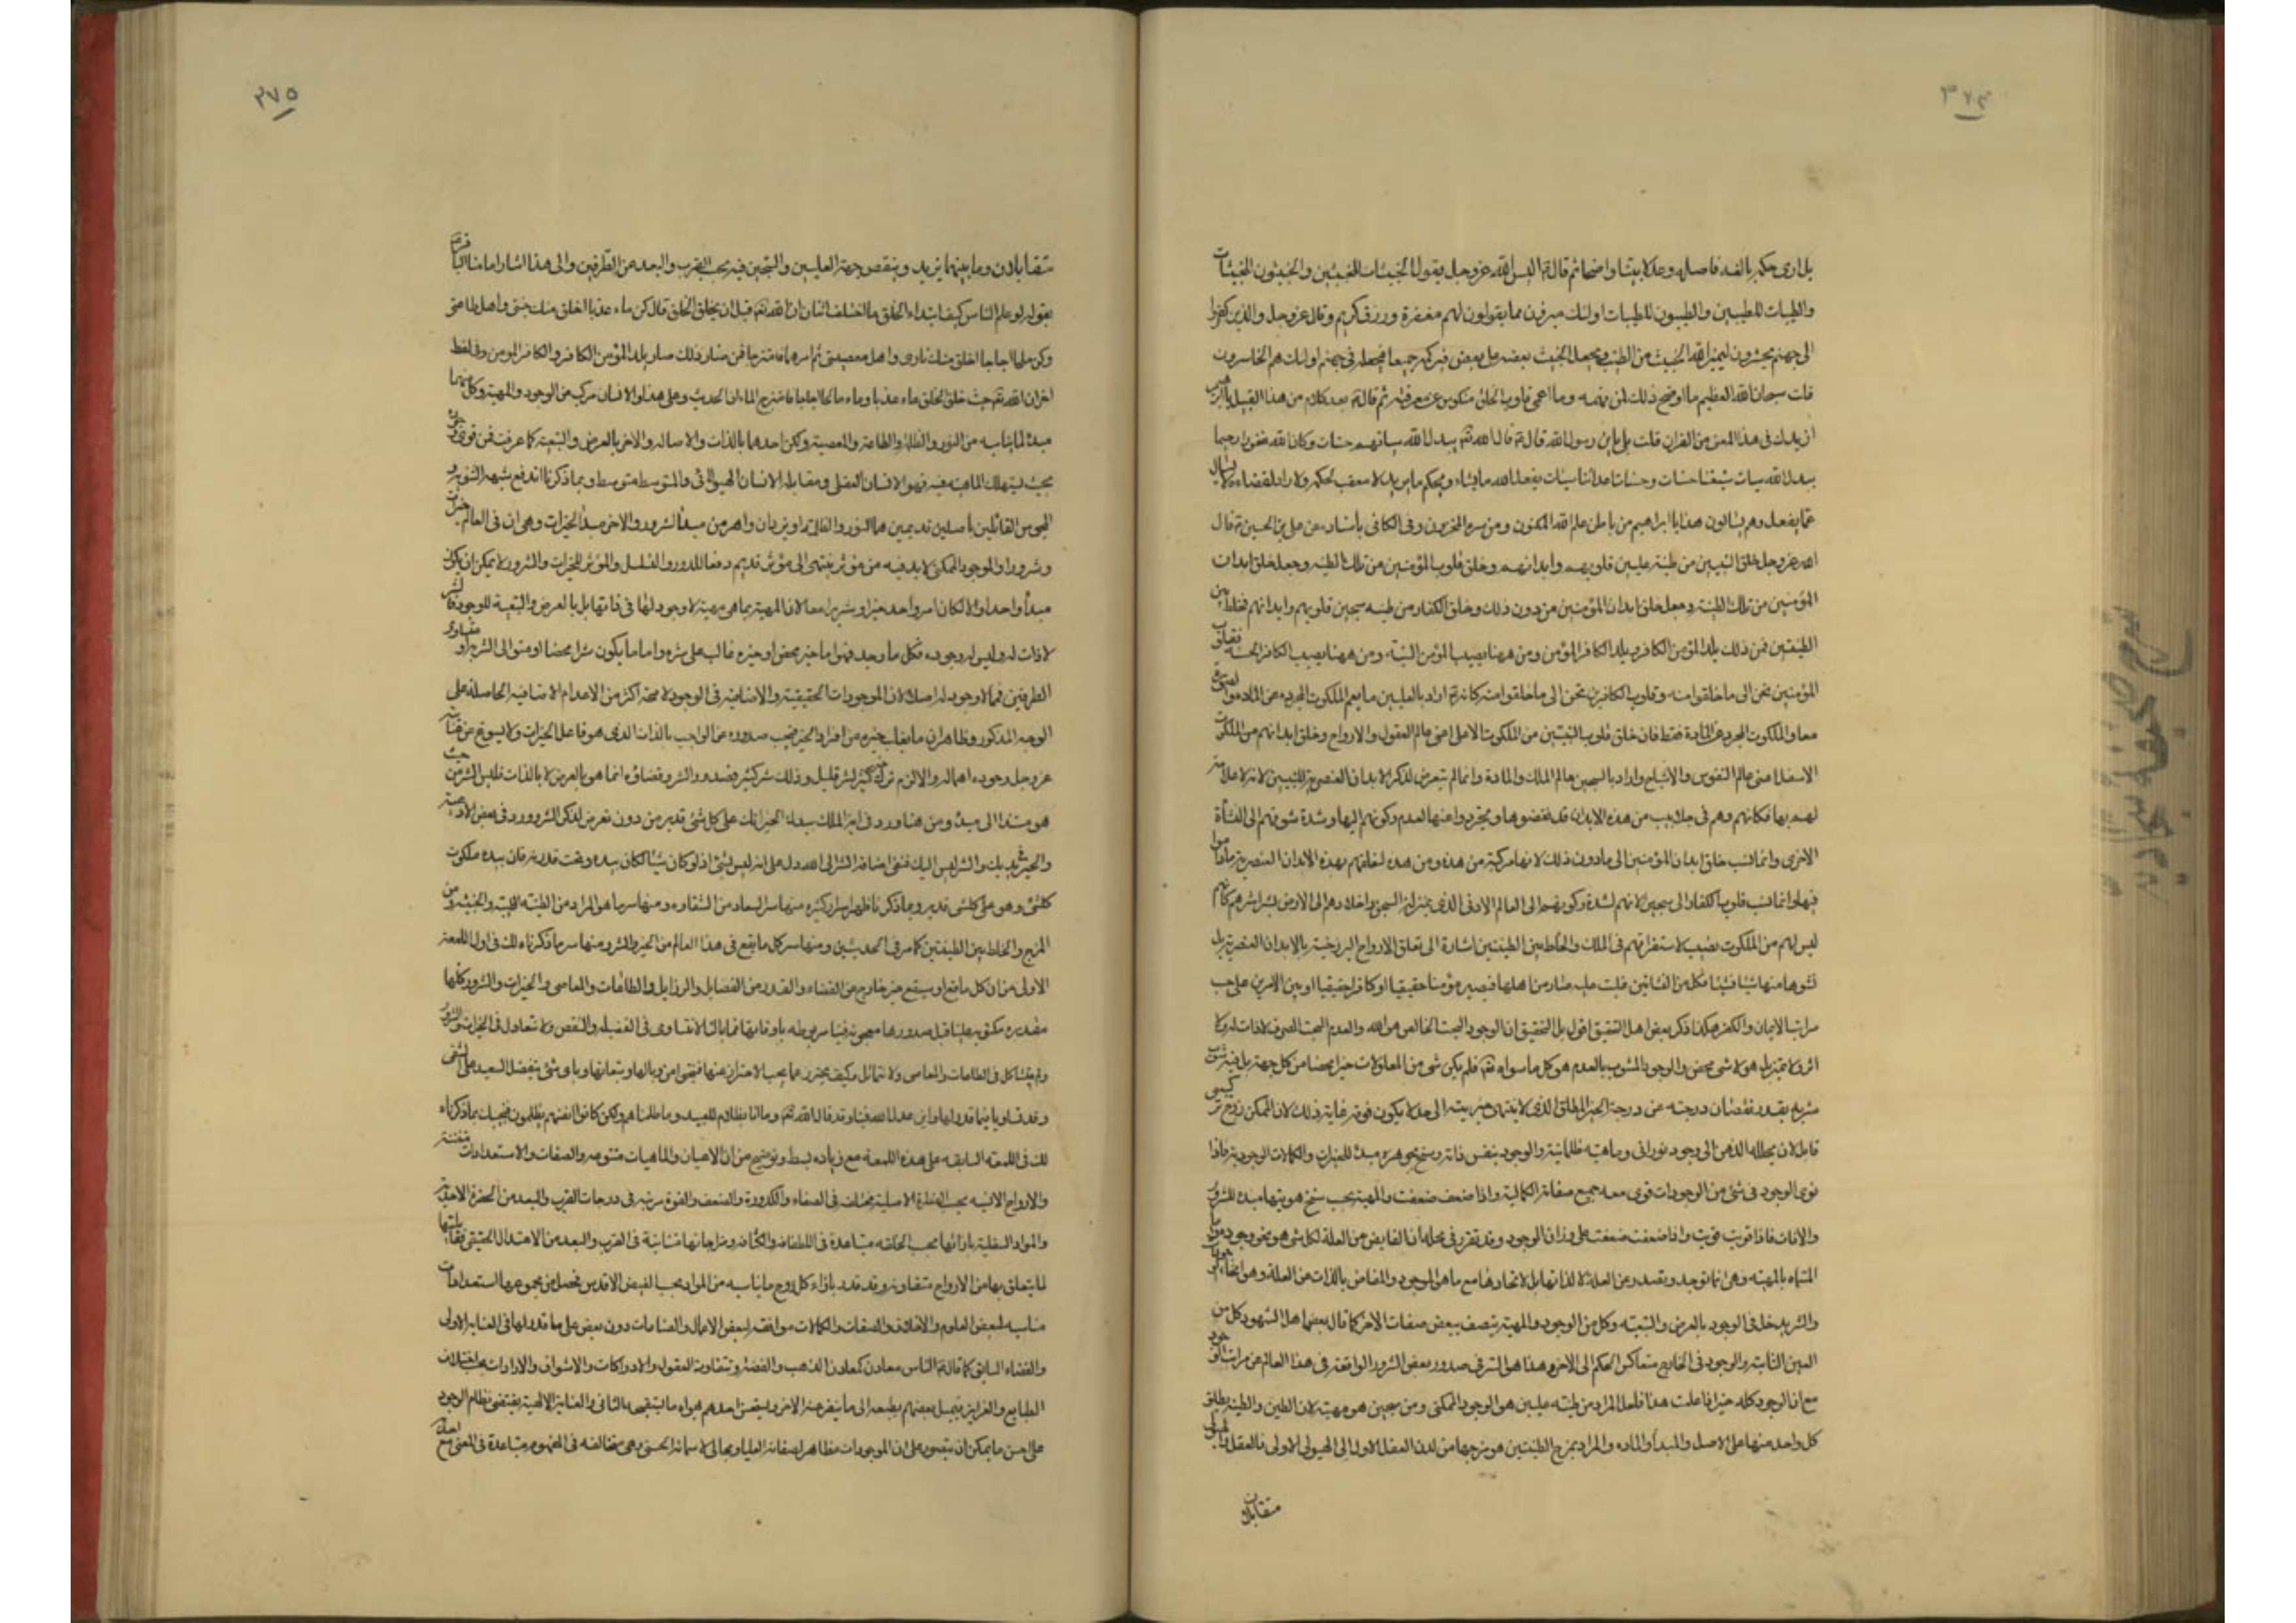 ٣٧٤
بل ارى حكم بالغه فاصله وعدلا بيّنا واضحا ثم قال ع اليس الله عز وجل يقول الخبيثات للخبيثين والخبيثون للخبيثات
والطيبات للطيبين والطيبون للطيبات اولئك مبرؤن مما يقولون لهم مغفرة ورزق كريم وقال عز وجل والذين كفروا
الى جهنم يحشرون ليميز الله الخبيث من الطيب ويجعل الخبيث بعضه على بعض فيركمه جميعا فيجعله في جهنم اولئك هم الخاسرون
قلت سبحان الله العظيم ما اوضح ذلك لمن فهمه وما اعمى قلوب الخلق المنكوس عن معرفته ثم قال ع بعد كلام من هذا القبيل يا ابراهيم
ازيدك في هذا المعنى من القران قلت بلى يابن رسول الله قال ع قال الله تعالى يبدل الله سيئاتهم حسنات وكان الله غفورا رحيما
يبدل الله سيئات شيعتنا حسنات وحسنات اعدائنا سيئات يفعل الله ما يشاء ويحكم ما يريد لا معقب لحكمه ولا راد لقضائه لا يسأل
عما يفعل وهم يسألون هذا يا ابراهيم من باطن علم الله المكنون ومن سره المخزون وفي الكافي بأسناده عن علي بن الحسين ع قال
ان الله عز وجل خلق النبيين من طينة عليين قلوبهم وابدانهم وخلق قلوب المؤمنين من تلك الطينة وجعل خلق ابدان
المؤمنين من تلك الطينة وجعل خلق ابدان المؤمنين من دون ذلك وخلق الكفار من طينة سجين قلوبهم وابدانهم فخلط بين
الطينتين فمن ذلك يلد المؤمن الكافر ويلد الكافر المؤمن ومن ههنا يصيب المؤمن السيئة ومن ههنا يصيب الكافر الحسنة فقلوب
المؤمنين تحن الى ما خلقوا منه وقلوب الكافرين تحن الى ما خلقوا منه كانه ع اراد بالعليين ما يعم الملكوت المجرده عن المادة والصورة
معا والملكوت المجرد عن المادة فقط فان خلق قلوب النبيين من الملكوت الاعلى اعنى عالم العقول والارواح وخلق ابدانهم من الملكوت
الاسفل اعنى عالم النفوس والاشباح واراد بالسجين عالم الملك والمادة وانما لم يتعرض لذكر الابدان العنصرية للنبيين لانه لا علاقة
لهم بها فكانهم وهم في جلابيب من هذه الابدان قد نفضوها وتجردوا عنها لعدم ركونهم اليها وشدة شوقهم الى النشأة
الاخرى وانما نسب خلق ابدان المؤمنين الى ما دون ذلك لانها مركبة من هذه ومن هذه لتعلقهم بهذه الابدان العنصرية ما داموا
فيها وانما نسب قلوب الكفار الى سجين لانهم لشدة ركونهم الى العالم الادنى الذي بمنزلة السجين واخلادهم الى الارض بشراشرهم كانهم
ليس لهم من الملكوت نصيب لاستغراقهم في الملك والخلط بين الطينتين اشارة الى تعلق الارواح البرزخية بالابدان العنصرية بل
نشوها منها شيئا فشيئا فكل من النشاتين غلبت عليه صار من اهلها فيصير مؤمنا حقيقيا او كافرا حقيقيا او بين الامرين على حسب
مراتب الايمان والكفر هكذا ذكر بعض اهل التحقيق اقول بل التحقيق ان الوجود البحت الخالص هو الله والعدم البحت الصرف لا ذات له ولا
اثر ولا تميز بل هو لا شيء محض والوجود المشوب بالعدم هو كل ما سواه تعالى فلم يكن شيء من المعلولات خيرا محضا من كل جهة بل فيه شوب
شرية بقدر نقصان درجته عن درجة الخير المطلق الذي لا ينتهى خيريته الى حد لا يكون فوقه غاية وذلك لان الممكن زوج تركيبي
قابل لان يحلله الذهن الى وجود نوراني وماهية ظلمانية والوجود بنفس ذاته وسنخ جوهره مبدء للخيرات والكمالات الوجودية فاذا
قوى الوجود في شيء من الموجودات قوى معه جميع صفاته الكمالية واذا ضعف ضعفت والمهية بحسب سنخ هويتها مبدء للشرور
والافات فاذا قويت قويت واذا ضعفت ضعفت على وزان الوجود وقد تقرر في محله ان الفايض من العلة لكل شيء هو نحو وجوده
المسماة بالمهية وهي انما توجد وتصدر عن العلة لا لذاتها بل لاتحادها مع ما هو الموجود والمفاض بالذات عن العلة وهو انحاء الوجودات
والشر يدخل في الوجود بالعرض والتبعية وكل من الوجود والمهية يتصف ببعض صفات الاخر كما قال بعض اهل الشهود كل من
العين الثابت والوجود في الخارج متعاكس الحكم الى الاخر وهذا هو السر في صدور بعض الشرور الواقعة في هذا العالم عن مراتب الوجود
مع ان الوجود كله خير اذا علمت هذا فلعل المراد من طينة عليين هو الوجود الممكنى ومن سجين هو مهيته لان الطين والطينة يطلق
كل واحد منها على الاصل والمبدأ والماده والمراد بمزج الطينتين هو مزجها من لدن العقل الاول الى الهيولى الاولى فالعقل والهيولى
متقابلان
٣٧٥
متقابلان وما بينهما يزيد وينقص جهة العليين والسجين فيه بحسب القرب والبعد عن الطرفين والى هذا اشار امامنا الباقر ع
بقوله لو علم الناس كيف ابتداء الخلق ما اختلف اثنان ان الله تعالى قبل ان يخلق الخلق قال كن ماء عذبا اخلق منك جنتي واهل طاعتي
وكن ملحا اجاجا اخلق منك ناري واهل معصيتي ثم امرهما فامتزجا فمن صار ذلك صار يلد المؤمن الكافر والكافر المؤمن وفي لفظ
اخر ان الله تعالى حيث خلق الخلق ماء عذبا وماء مالحا اجاجا فامتزج الماءان الحديث وعلى هذا والانسان مركب من الوجود والمهية وكل منهما
مبدء لما يناسبه من النور والظلمة والطاعة والمعصية ولكن احدهما بالذات والاصاله والاخر بالعرض والتبعية كما عرفت فمن قوى وجوده
بحيث ليتهلك الماهية فيه فهو الانسان العقلى ومقابله الانسان الهيولانى والمتوسط متوسط وبما ذكرنا اندفع شبهة الثنوية و
المجوس القائلين باصلين قديمين هما النور والظلمة او يزدان واهرمن مبدأ الشرور والاخر مبدأ الخيرات وهي ان في العالم خيرات
وشرورا والموجود الممكن لا بد فيه من مؤثر ينتهى الى مؤثر قديم دفعا للدور والتسلسل والمؤثر للخيرات والشرور لا يمكن ان يكون
مبدأ واحدا والا لكان امر واحد خيرا وشريرا معا لان المهية بما هي مهية لا وجود لها في ذاتها بل بالعرض والتبعية للوجود فالشر
لا ذات له وليس له وجود فكل ما وجد فهو اما خير محض او خيره غالب على شره واما ما يكون شرا محضا او مستولى الشرية او متساوى
الطرفين فما لا وجود له اصلا لان الموجودات الحقيقية والاضافية في الوجود لا محة اكثر من الاعدام الاضافية الحاصلة على
الوجه المذكور وظاهر ان ما يغلب خيره من افراد الخير فيجب صدوره عن الواجب بالذات الذي هو فاعل الخيرات ولا يسوغ عن عنايته
عز وجل وجوده اهماله والا لزم ترك خير كثير لشر قليل وذلك شر كثير فصدور الشر وقضاؤه انما هو بالعرض لا بالذات فليس الشر من حيث
هو مستندا الى مبدء ومن هنا ورد في اية الملك بيدك الخير انك على كل شئ قدير من دون تعرض لذكر الشر وورد في بعض الادعية
والخير كله بيديك والشر ليس اليك فنفى اضافة الشر الى الله ودل على انه ليس بشئ اذ لو كان شيئا لكان بيده وتحت قدرته فان بيده ملكوت
كلشئ وهو على كلشئ قدير وبما ذكرنا ظهر اسرار كثيره منها سر السعادة من الشقاوه ومنها سر ما هو المراد من الطينة الطيبة والخبيثة ومن
المزج والخلط بين الطينتين كما مر في الحديثين ومنها سر كل ما يقع في هذا العالم من الخير والشر ومنها سر ما ذكرناه لك في اول اللمعة
الاولى من ان كل ما وقع او سيقع غير خارج عن القضاء والقدر من الفضايل والرذايل والطاعات والمعاصى والخيرات والشرور كلها
مقدره مكتوبه علينا قبل صدورها معجونة فينا مربوطه باوقاتها فما بالنا لا نتساوى في الفضيلة والنقص ولا نتعادل في الخيرات والشرور
ولم يتشاكل في الطاعات والمعاصى ولا نتماثل وكيف يحترز عما يجب الاحتراز عنها فيتقى امن وبالها وتبعاتها وباى شئ يتفضل السعيد على الشقى
وقد تساويا فيما قدر لهما واين عدل الله فينا وقد قال الله تعالى وما انا بظلام للعبيد وما ظلمناهم ولكن كانوا انفسهم يظلمون فنجيبك بما ذكرناه
لك في اللمعة السابقه على هذه اللمعة مع زياده بسط وتوضيح من ان الاعيان والماهيات متنوعه والصفات والاستعدادات متفننة
والارواح الانسية بحسب الفطرة الاصلية مختلفه في الصفاء والكدورة والضعف والقوة مرتبه في درجات القرب والبعد من الحضرة الاحدية
والمواد السفلية بازائها بحسب الخلقه متباعدة في اللطافه والكثافه ومزاجاتها متباينة في القرب والبعد من الاعتدال الحقيقي فقابليتها
لما يتعلق بها من الارواح متفاوته وقد قدر بازاء كل روح ما يناسبه من المواد بحسب الفيض الاقدس فحصل من مجموعها استعدادات
مناسبه لبعض العلوم والاخلاق والصفات والكمالات موافقه لبعض الاعمال والصناعات دون بعض على ما قدر لها في العناية الاولى
والقضاء السابق كما قال ع الناس معادن كمعادن الذهب والفضة وتتفاوت العقول والادراكات والاشواق والارادات بحسب اختلاف
الطبايع والغرايز فيميل بعضهم بطبعه الى ما ينفر عنه الاخر ويستحسن احدهم بهواه ما يستقبحه الثانى والعناية الالهية يقتضى نظام الوجود
على احسن ما يمكن ان يتصور على ان الموجودات مظاهر لصفاته العليا ومجالى لاسمائه الحسنى وهي متخالفه في المفهوم متباعدة في المعنى مع